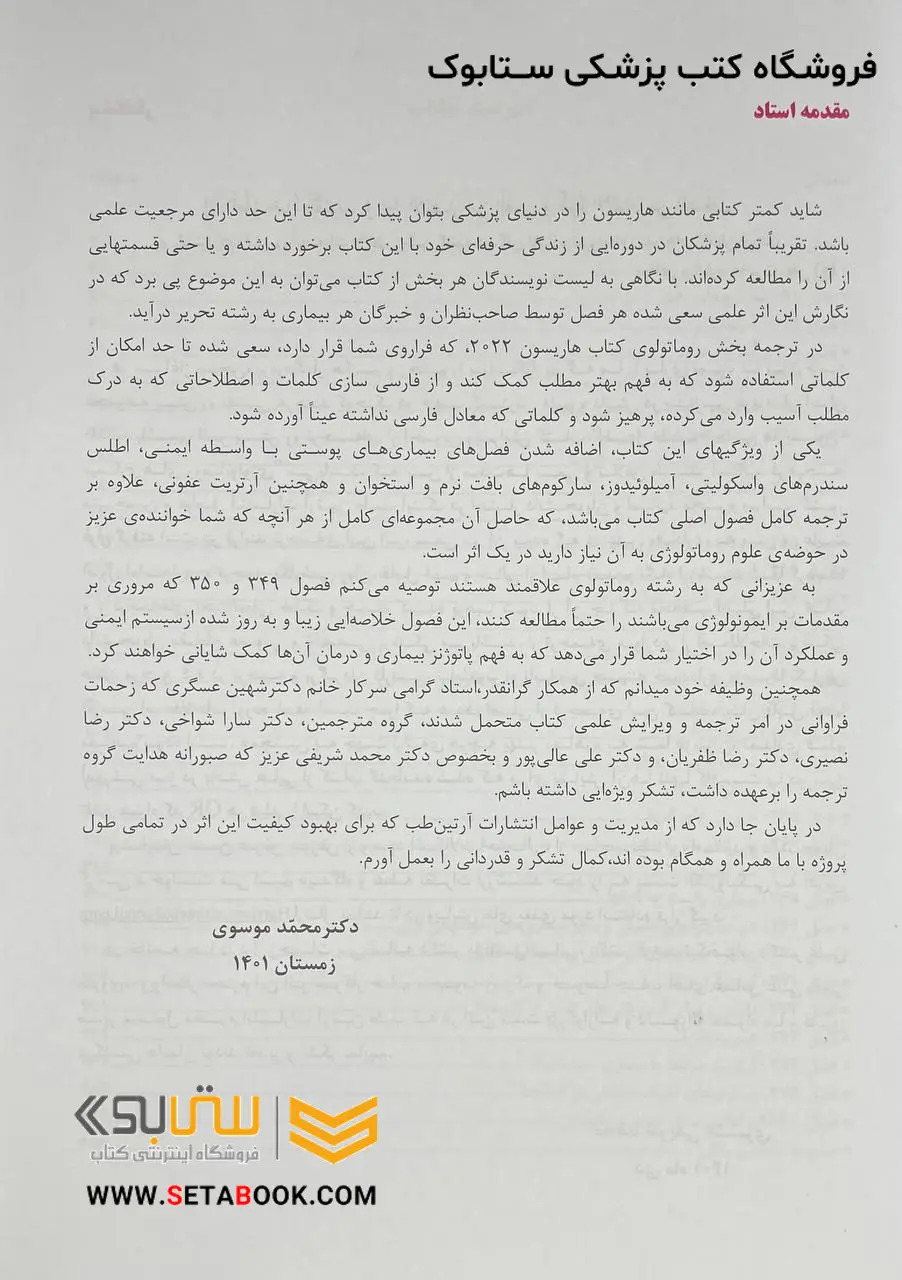 فروشگاه کتب پزشکی ستابوک
مقدمه استاد
شاید کمتر کتابی مانند هاریسون را در دنیای پزشکی بتوان پیدا کرد که تا این حد دارای مرجعیت علمی
باشد. تقریباً تمام پزشکان در دوره‌ایی از زندگی حرفه‌ای خود با این کتاب برخورد داشته و یا حتی قسمتهایی
از آن را مطالعه کرده‌اند. با نگاهی به لیست نویسندگان هر بخش از کتاب می‌توان به این موضوع پی برد که در
نگارش این اثر علمی سعی شده هر فصل توسط صاحب‌نظران و خبرگان هر بیماری به رشته تحریر درآید.
در ترجمه بخش روماتولوی کتاب هاریسون ۲۰۲۲، که فراروی شما قرار دارد، سعی شده تا حد امکان از
کلماتی استفاده شود که به فهم بهتر مطلب کمک کند و از فارسی سازی کلمات و اصطلاحاتی که به درک
مطلب آسیب وارد می‌کرده، پرهیز شود و کلماتی که معادل فارسی نداشته عیناً آورده شود.
یکی از ویژگیهای این کتاب، اضافه شدن فصل‌های بیماری‌های پوستی با واسطه ایمنی، اطلس
سندرم‌های واسکولیتی، آمیلوئیدوز، سارکوم‌های بافت نرم و استخوان و همچنین آرتریت عفونی، علاوه بر
ترجمه کامل فصول اصلی کتاب می‌باشد، که حاصل آن مجموعه‌ای کامل از هر آنچه که شما خواننده‌ی عزیز
در حوضه‌ی علوم روماتولوژی به آن نیاز دارید در یک اثر است.
به عزیزانی که به رشته روماتولوی علاقمند هستند توصیه می‌کنم فصول ۳۴۹ و ۳۵۰ که مروری بر
مقدمات بر ایمونولوژی می‌باشند را حتماً مطالعه کنند، این فصول خلاصه‌ایی زیبا و به روز شده ازسیستم ایمنی
و عملکرد آن را در اختیار شما قرار می‌دهد که به فهم پاتوژنز بیماری و درمان آن‌ها کمک شایانی خواهند کرد.
همچنین وظیفه خود میدانم که از همکار گرانقدر،استاد گرامی سرکار خانم دکترشهین عسگری که زحمات
فراوانی در امر ترجمه و ویرایش علمی کتاب متحمل شدند، گروه مترجمین، دکتر سارا شواخی، دکتر رضا
نصیری، دکتر رضا ظفریان، و دکتر علی عالی‌پور و بخصوص دکتر محمد شریفی عزیز که صبورانه هدایت گروه
ترجمه را برعهده داشت، تشکر ویژه‌ایی داشته باشم.
در پایان جا دارد که از مدیریت و عوامل انتشارات آرتین‌طب که برای بهبود کیفیت این اثر در تمامی طول
پروژه با ما همراه و همگام بوده اند،کمال تشکر و قدردانی را بعمل آورم.
دکترمحمّد موسوی
زمستان ۱۴۰۱
ستابوک
فروشگاه اینترنتی کتاب
WWW.SETABOOK.COM